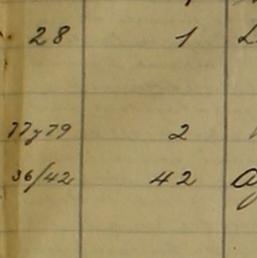 28 1
77 y 79 2
36/42 42